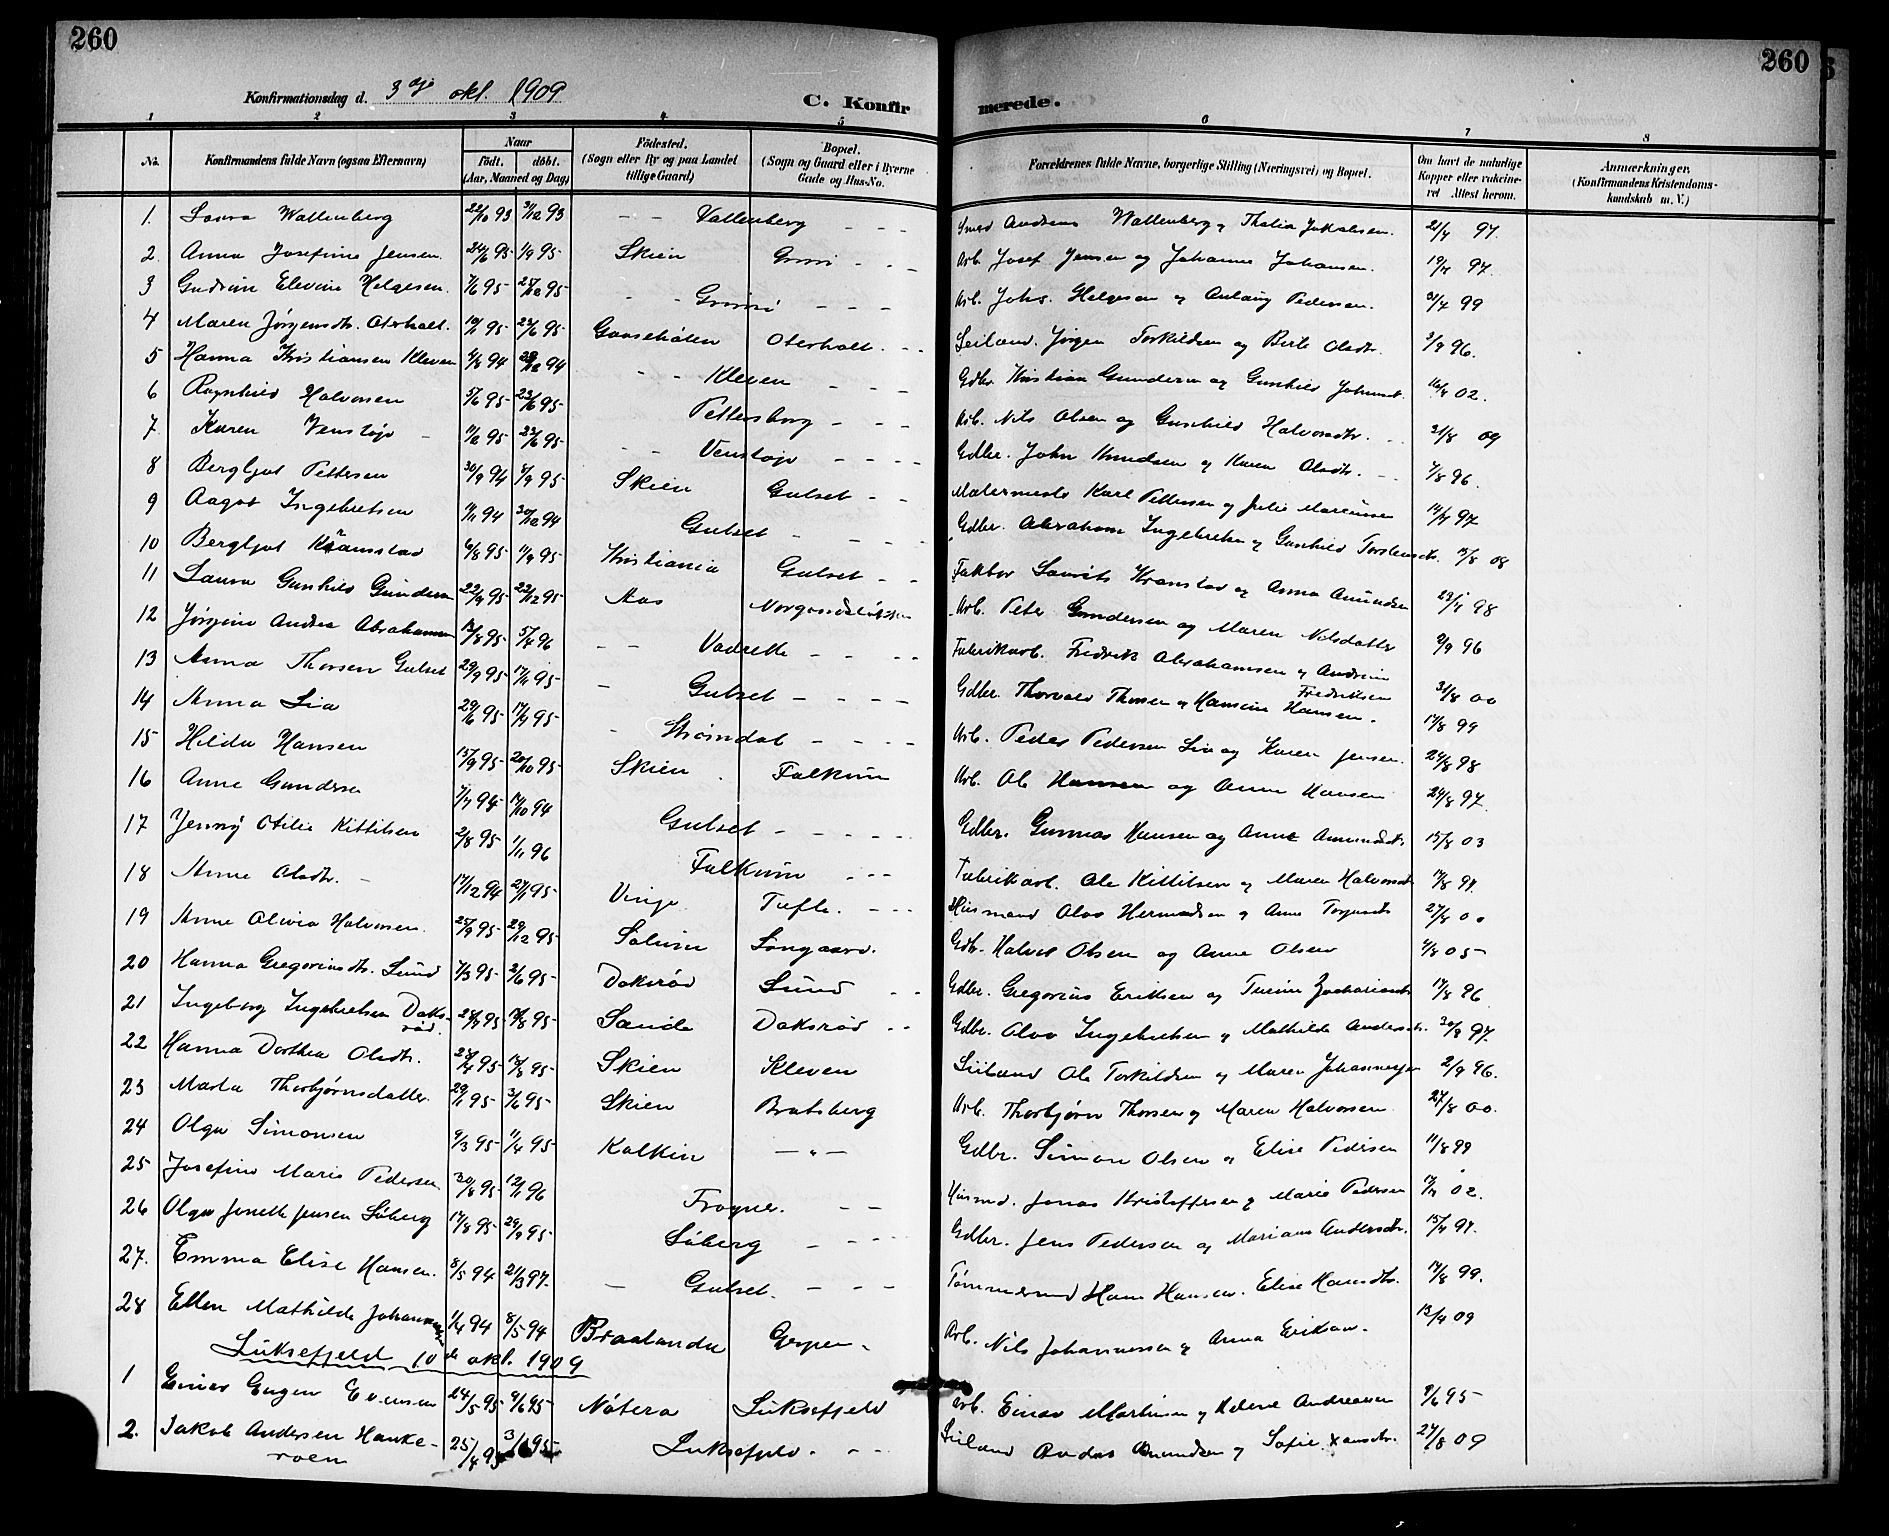 260
260
Konfirmationsdag d. 3dje okt. 1909
C. Konfir merede.
1 2 3 4 5 6 7 8
No.
Konfirmandens fulde Navn (ogsaa Efternavn)
Naar
födt. döbt.
(Aar, Maaned og Dag)
Födested.
(Sogn eller By og paa Landet
tillige Gaard)
Bopæl.
(Sogn og Gaard eller i Byerne
Gade og Hus-No.
Forældrenes fulde Navne, borgerlige Stilling (Næringsvei) og Bopæl.
Om havt de naturlige
Kopper eller vakcine-
ret Attest herom.
Anmærkninger.
(Konfirmandens Kristendoms-
kundskab m. V.)
1. Laura Wallenberg 22/10 93 31/12 93 – – Vallenberg – – – Smed Andreas Wallenberg og Thalia Jakobsen. 21/4 97.
2. Anna Josefine Jensen 24/6 95 1/9 95 Skien Grini – – – Arb. Josef Jensen og Johanne Johansen. 19/4 97.
3 Gudrun Elevine Helgesen. 7/6 95 25/12 95 – – Grini – – – Arb. Johs. Helgesen og Anlaug Pedersen. 99
4 Maren Jørgensdtr. Oterholt. 10/1 95 23/6 95 Gaasehølen Oterholt. – – Leilænd. Jørgen Torkildsen og Berte Olsdtr. 3/9 96.
5 Hanna Kristiansen Kleven 4/8 94 94 – – Kleven – – – Gdbr. Kristian Gundersen og Gunhild Johnsdt. 16/4 02.
6 Ragnhild Halvorsen 5/6 95 23/6 95 Pettersborg – – – Arb. Nils Olsen og Gunhild Halvorsdtr. 21/8 09
7. Karen Venstøp – 11/2 95 23/6 95 – – Venstøp – – – – Gdbr. John Knudsen og Karen Olsdtr. – – 7/8 96.
8 Bergljot Pettersen 30/9 94 7/9 95 Skien Gulset – – Malermester Karl Pettersen og Julie Mareussen 14/4 97
9 Aagot Ingebretsen 11/11 94 30/12 94 Gulset – – – – Gdbr. Abraham Ingebretsen og Gunhild Torstensdtr. 15/8 08
10 Bergljot Kramstad 6/8 95 1/9 95 Kristiania Gulset – – Faktor Laurits Kramstad og Anna Amundsen 23/4 98
11 Laura Gunhild Gundersen 22/9 95 22/12 95 Aas Arb. Peter Gundersen og Maren Nilsdatter 9/9 96
12 Jørgine Andrea Abrahamsen 12/8 95 5/4 96 – – Vadrette – – – – Fabrikarb. Fredrik Abrahamsen og Andrine
Fredriksen 31/8 00
13 Anna Thorsen Gulset 29/9 95 17/11 95 – Gulset – – – – Gdbr. Thorvald Thorsen og Hansine Hansen. 17/8 99
14 Anna Lia 29/6 95 17/9 95 – Strømdal – – – – Arb. Peder Pedersen Lia og Karen Jensen. 24/8 98
15 Hilda Hansen 15/9 95 20/10 95 Skien. Falkum Arb. Ole Hansen og Anne Hansen 24/8 97.
16 Anne Gundersen 7/7 94 14/10 94 Gulset – – – – – Gdbr. Gunnar Hansen og Anne Amundsdtr. 15/8 03
17 Jenny Otilie Kittilsen 2/8 95 1/11 96 Falkum – – – Fabrikarb. Ole Kittilsen og Maren Halvorsdtr. 17/8 97.
18 Anne Olsdtr. – 17/12 94 27/1 95 Vinje Tufte. – – – Husmand Olav Hermodsen og Anne Torjusdtr 27/8 00
19 Anne Olivia Halvorsen. 25/9 95 29/12 95 Solum Gdbr. Halvor Olsen og Anne Olsen 4/8 05
20 Hanna Gregoriusdtr. Lund 7/3 95 2/6 95 Doksrød Lund – – Gdbr. Gregorius Eriksen og Turine Zachariasdtr 17/8 96
21 Ingeborg Ingebretsen Doks-
rød. 95 95 Sande Doksrød – – Gdbr. Olav Ingebretsen og Mathilde Andersdtr. 97.
22 Hanna Dorthea Olsdtr. 95 18/8 95 Skien Kleven Leilænd Ole Torkildsen og Maren Johannesen 2/9 96.
23 Marta Thorbjørnsdatter 29/1 95 3/6 95 Skien Bratsberg Arb. Thorbjørn Thorsen og Maren Halvorsen 27/8 00.
24 Olga Simonsen 9/3 95 11/4 95 Kolkin – " – Gdbr. Simon Olsen og Elise Pedersen 11/8 99
25 Josefine Marie Pedersen 30/8 95 12/1 96 Frogner. – – Husmd. Jonas Kristoffersen og Marie Pedersen 02.
26 Olga Jonette Jensen Løberg 17/8 95 29/9 95 Løberg – – – – Gdbr. Jens Pedersen og Mariane Andersdtr. 15/4 97.
27. Emma Elise Hansen. 8/5 94 21/3 97. – Gulset. – – – Tømmermd Hans Hansen. Elise Hansdtr. 17/8 99.
28 Ellen Mathilde Johannesen 1/4 94 8/5 94 Braalandu Gjerpen – Arb. Nils Johannesen og Anna Eriksen. 13/4 09
Luksefjeld 10de okt. 1909
1 Einar Eugen Evensen 24/5 95 9/6 95 Nøtera Luksefjeld Arb. Einar Martinsen og Helene Andreasen 9/6 95
2. Jakob Andersen Hauke-
roen 25/4 95 3/6 95 Luksefjeld. – – Leilænd Amundsen og Sofie 27/8 09